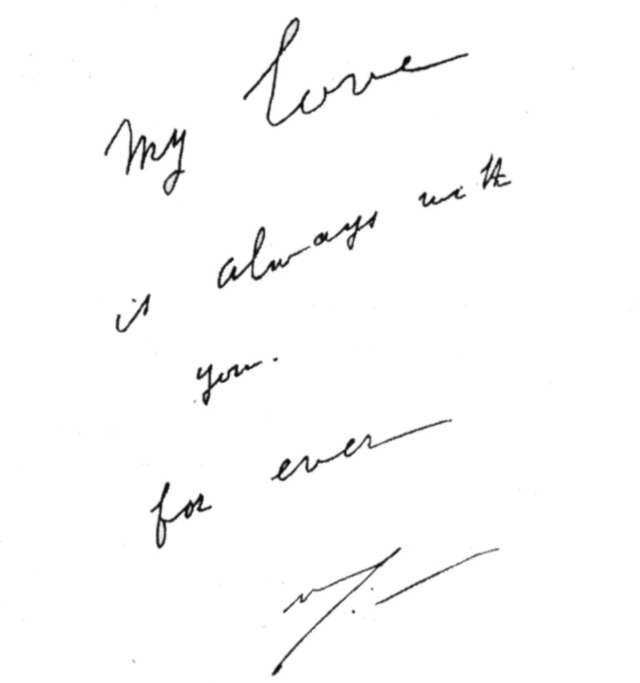 My love
is always with
you.
for ever